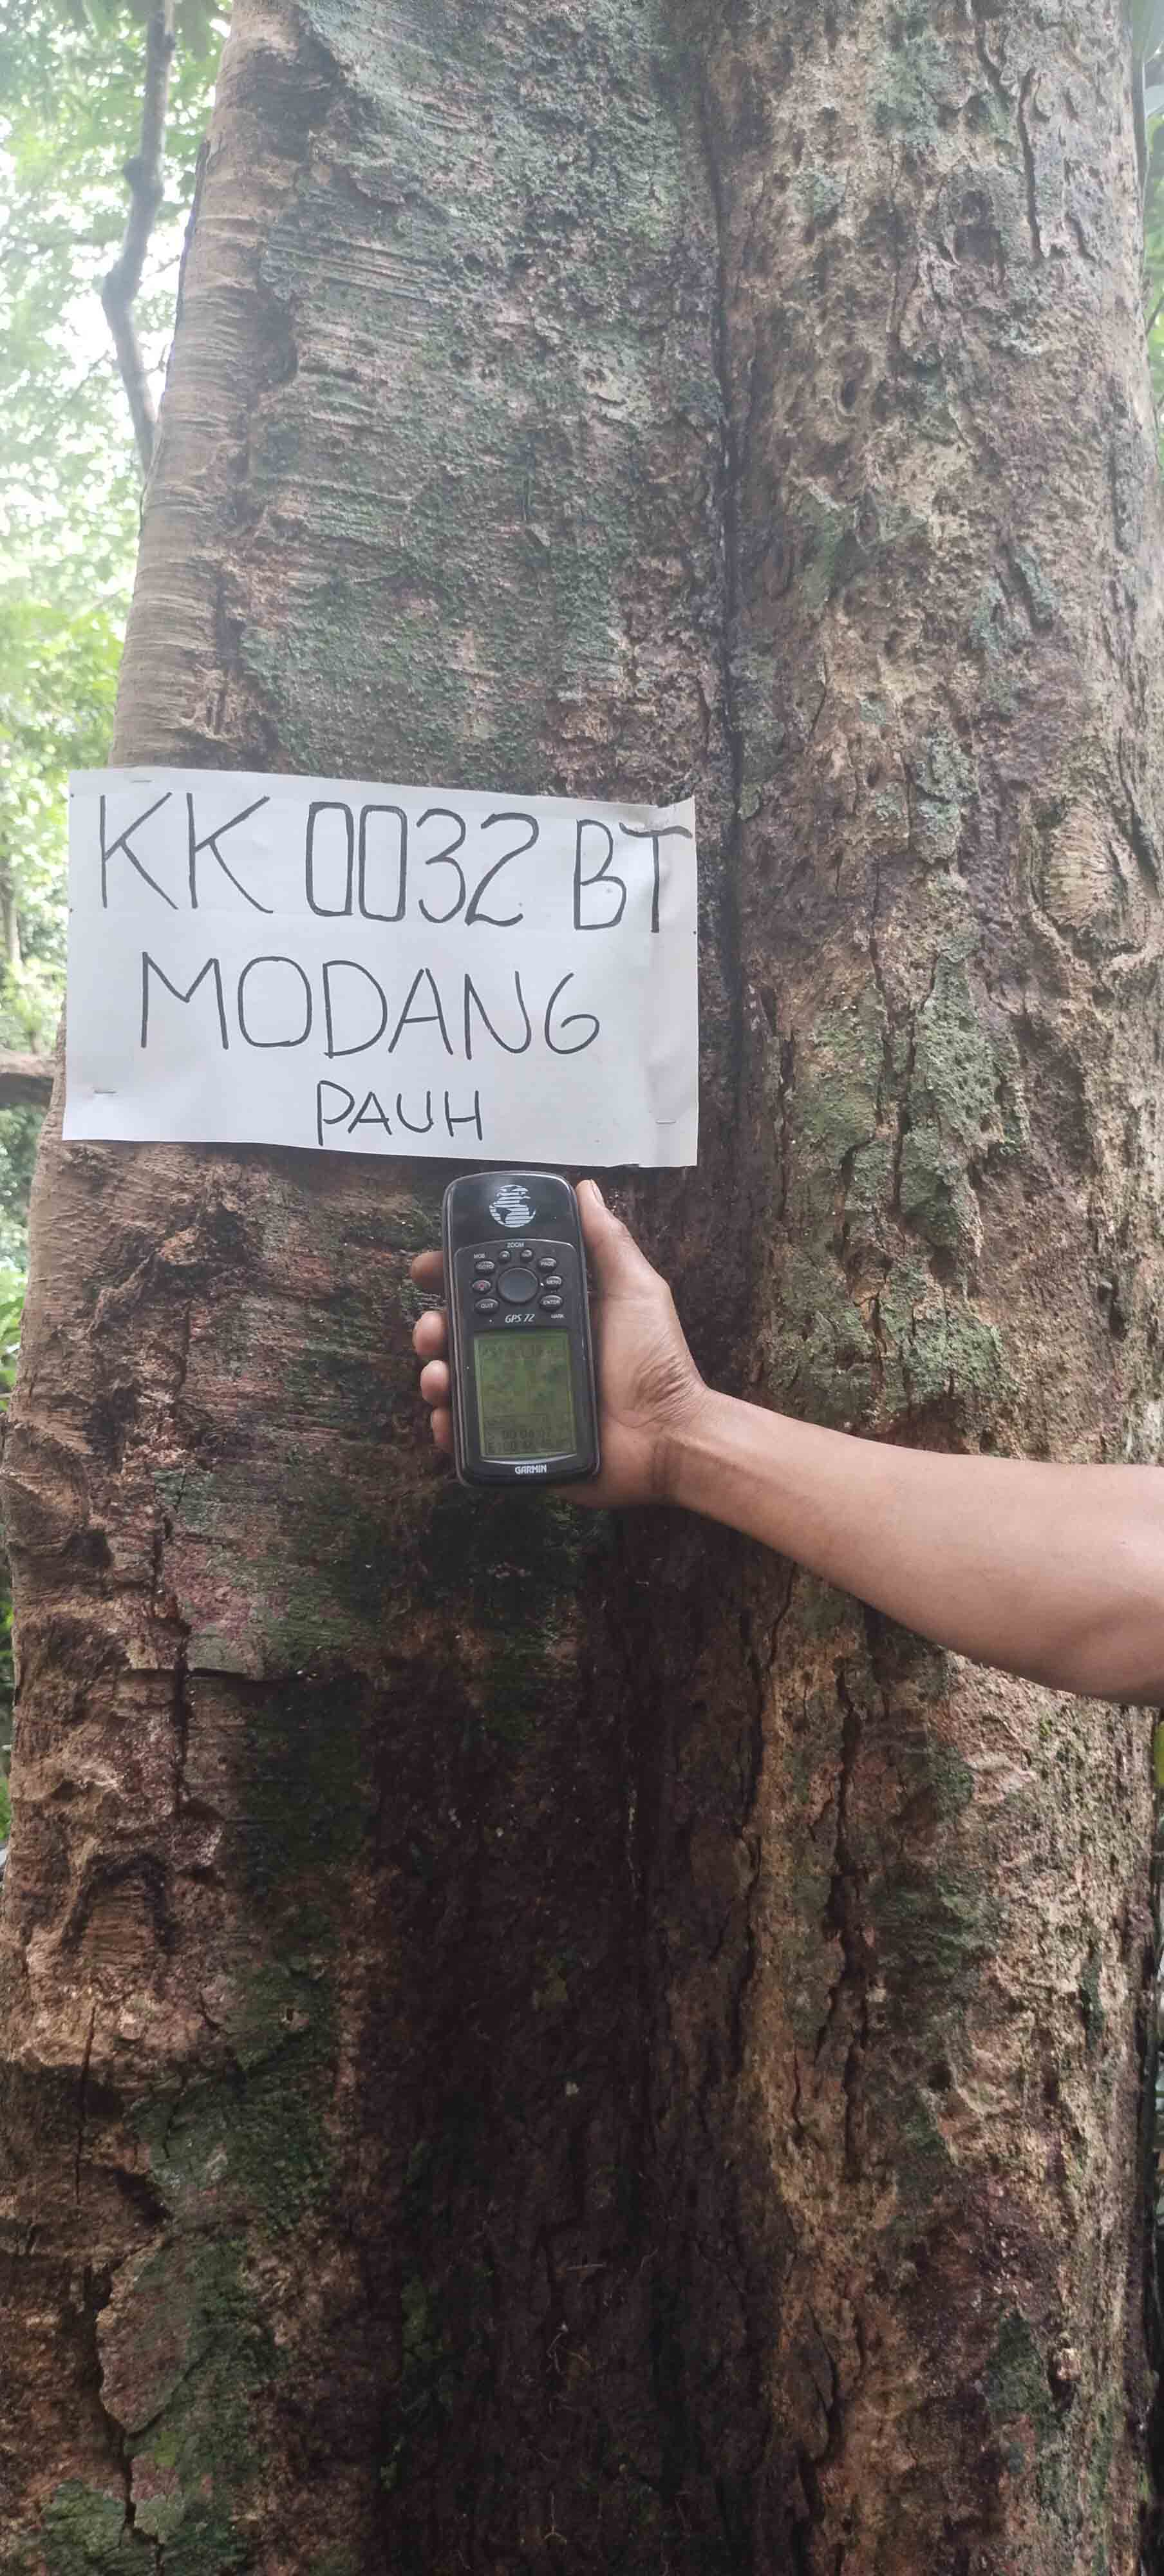 KK 0032 BT
MODANG
PAUH
ZOOM
MOB
PAGE
MENU
QUIT
ENTER
MARK
GPS 72
GARMIN